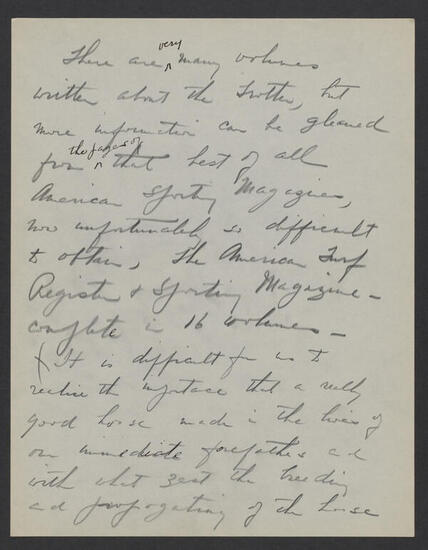 There are very many volumes
written about the Trotter, but
more information can be gleaned
from the pages of that best of all
American Sporting Magazines,
now unfortunately so difficult
to obtain, The American Turf
Register & Sporting Magazine -
complete in 16 volumes -
It is difficult for us to
realise the importance that a really
good horse made in the lives of
our immediate forefathers and
with what zest the breeding
and propogating of the horse